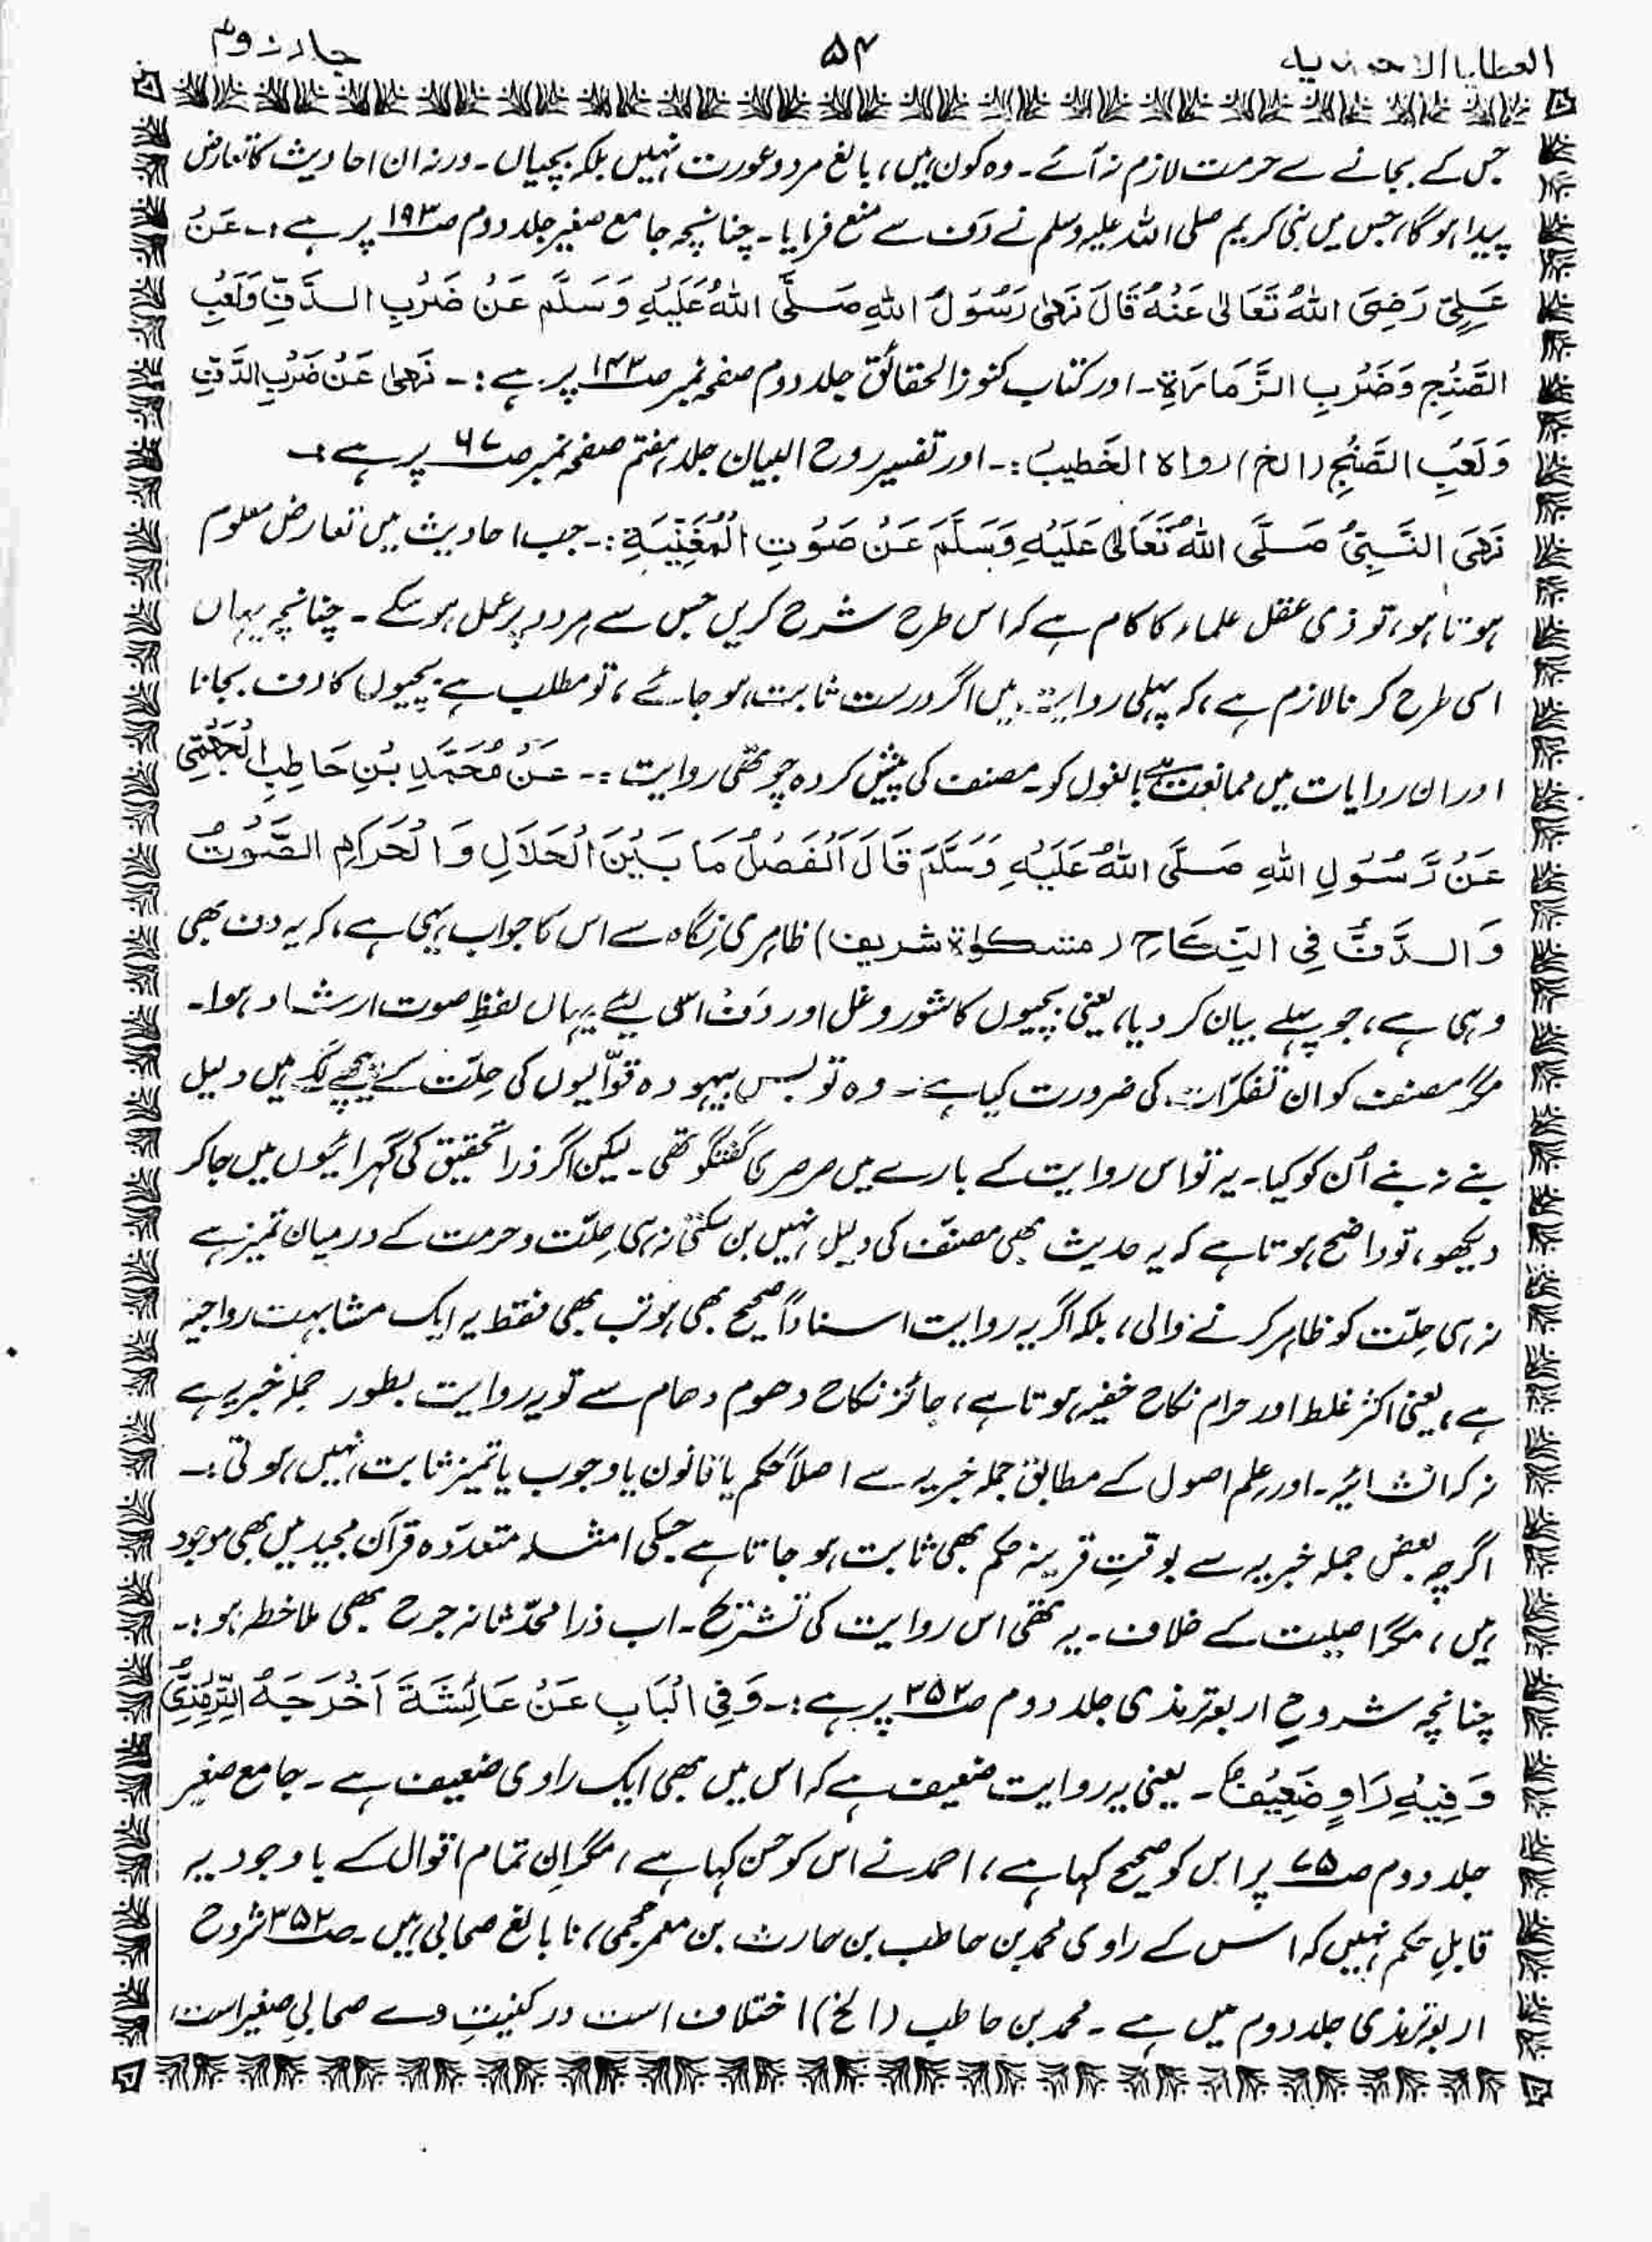 العطایا الاحمدیہ ۵۴ جلد دوم
جس کے بجانے سے حرمت لازم نہ آئے۔ وہ کون ہیں، بالغ مرد و عورت نہیں بلکہ بچیاں۔ ورنہ ان احادیث کا تعارض
پیدا ہوگا، جس میں نبی کریم صلی اللہ علیہ وسلم نے دَف سے منع فرمایا۔ چنانچہ جامع صغیر جلد دوم صـ۱۹۳ پر ہے :۔ عَنْ
عَلِیٍّ رَضِیَ اللہُ تَعَالٰی عَنْہُ قَالَ نَہٰی رَسُوْلُ اللہِ صَلَّی اللہُ عَلَیْہِ وَسَلَّمَ عَنْ ضَرْبِ الدَّفِّ وَلَعْبِ
الصَّنْجِ وَضَرْبِ الزَّمَارَۃِ۔ اور کتاب کنوز الحقائق جلد دوم صفحہ نمبر صـ۱۴۳ پر ہے :۔ نَہٰی عَنْ ضَرْبِ الدَّفِّ
وَلَعْبِ الصَّنْجِ (الخ) رواہ الخَطیبُ :۔ اور تفسیر روح البیان جلد ہفتم صفحہ نمبر صـ۶۷ پر ہے :۔
نَہَی النَّبِیُّ صَلَّی اللہُ تَعَالٰی عَلَیْہِ وَسَلَّمَ عَنْ صَوْتِ الْمُغَنِّیَۃِ :۔ جب احادیث میں تعارض معلوم
ہوتا ہو، تو ذی عقل علماء کا کام ہے کہ اس طرح شرح کریں جس سے ہر دو پر عمل ہو سکے۔ چنانچہ یہاں
اسی طرح کرنا لازم ہے، کہ پہلی روایۃ میں اگر درست ثابت ہو جائے، تو مطلب ہے بچیوں کا دف بجانا
اور ان روایات میں ممانعت ہے بالغوں کو۔ مصنف کی پیش کردہ چوتھی روایت :۔ عَنْ مُحَمَّدِ بْنِ حَاطِبِ الْجُمَحِی
عَنْ رَّسُوْلِ اللہِ صَلَّی اللہُ عَلَیْہِ وَسَلَّمَ قَالَ اَلْفَصْلُ مَا بَیْنَ الْحَلَالِ وَالْحَرَامِ الصَّوْتُ
وَالدَّفُّ فِی النِّکَاحِ (مشکوٰۃ شریف) ظاہری نگاہ سے اس کا جواب یہی ہے، کہ یہ دف بھی
وہی ہے، جو پہلے بیان کر دیا، یعنی بچیوں کا شور و غل اور دَف اسی لیے یہاں لفظِ صوت ارشاد ہوا۔
مگر مصنف کو ان تفکرّات کی ضرورت کیا ہے۔ وہ تو بس بیہودہ قوّالیوں کی حِلّت کے پیچھے لگے ہیں دلیل
بنے نہ بنے اُن کو کیا۔ یہ تو اس روایت کے بارے میں سرسری گفتگو تھی۔ لیکن اگر ذرا تحقیق کی گہرائیوں میں جا کر
دیکھو، تو واضح ہوتا ہے کہ یہ حدیث بھی مصنّف کی دلیل نہیں بن سکتی نہ ہی حِلّت و حرمت کے درمیان تمیز ہے
نہ ہی حِلّت کو ظاہر کرنے والی، بلکہ اگر یہ روایت اسناداً صحیح بھی ہو تب بھی فقط یہ ایک مشابہت رواجیہ
ہے، یعنی اکثر غلط اور حرام نکاح خفیہ ہوتا ہے، جائز نکاح دھوم دھام سے تو یہ روایت بطور جملہ خبریہ ہے
نہ کہ انشائیہ۔ اور علم اصول کے مطابق جملہ خبریہ سے اصلاً حکم یا قانون یا وجوب یا تمیز ثابت نہیں ہوتی :۔
اگرچہ بعض جملہ خبریہ سے بوقتِ قرینہ حکم بھی ثابت ہو جاتا ہے جسکی امثلہ متعدّدہ قرآن مجید میں بھی موجود
ہیں، مگر اصلیت کے خلاف۔ یہ تھی اس روایت کی تشریح۔ اب ذرا محدّثانہ جرح بھی ملاخطہ ہو :۔
چنانچہ شروحِ اربعہ ترمذی جلد دوم صـ۳۵۲ پر ہے :۔ وَفِی الْبَابِ عَنْ عَائِشَۃَ اَخْرَجَہُ التِّرْمِذِیُّ
وَفِیْہِ رَاوٍ ضَعِیْفٌ۔ یعنی یہ روایت ضعیف ہے کہ اس میں بھی ایک راوی ضعیف ہے۔ جامع صغیر
جلد دوم صـ۷۵ پر اس کو صحیح کہا ہے، احمد نے اس کو حسن کہا ہے، مگر ان تمام اقوال کے باوجود یہ
قابلِ حکم نہیں کہ اس کے راوی محمد بن حاطب بن حارث بن معمر جمحی، نابالغ صحابی ہیں۔ صـ۳۵۲ شروح
اربعہ ترمذی جلد دوم میں ہے۔ محمد بن حاطب (الخ) اختلاف است در کنیتِ وے صحابیِ صغیر است،